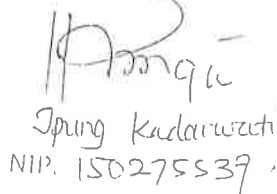 Ipung Kadarwati
NIP. 150275539